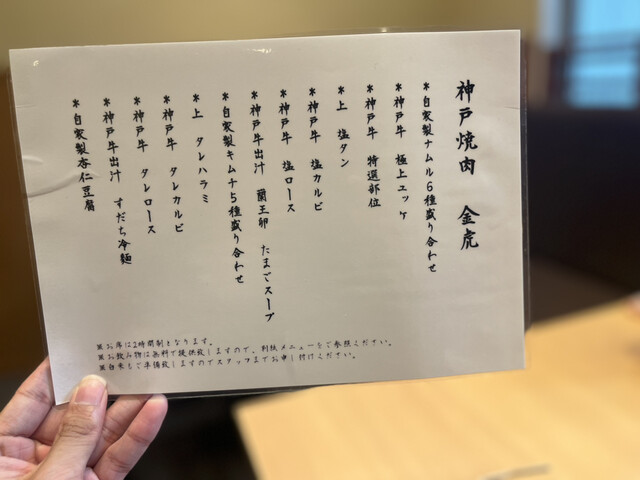 神戸焼肉 金虎
*自家製ナムル6種盛り合わせ
*神戸牛 極上ユッケ
*神戸牛 特選部位
*上 塩タン
*神戸牛 塩カルビ
*神戸牛 塩ロース
*神戸牛出汁 蘭王卵 たまごスープ
*自家製キムチ5種盛り合わせ
*上 タレハラミ
*神戸牛 タレカルビ
*神戸牛 タレロース
*神戸牛出汁 すだち冷麺
*自家製杏仁豆腐
※お席は2時間制となります。
※お飲み物は無料で提供致しますので、別紙メニューをご参照ください。
※白米もご準備致しますのでスタッフまでお申し付けください。